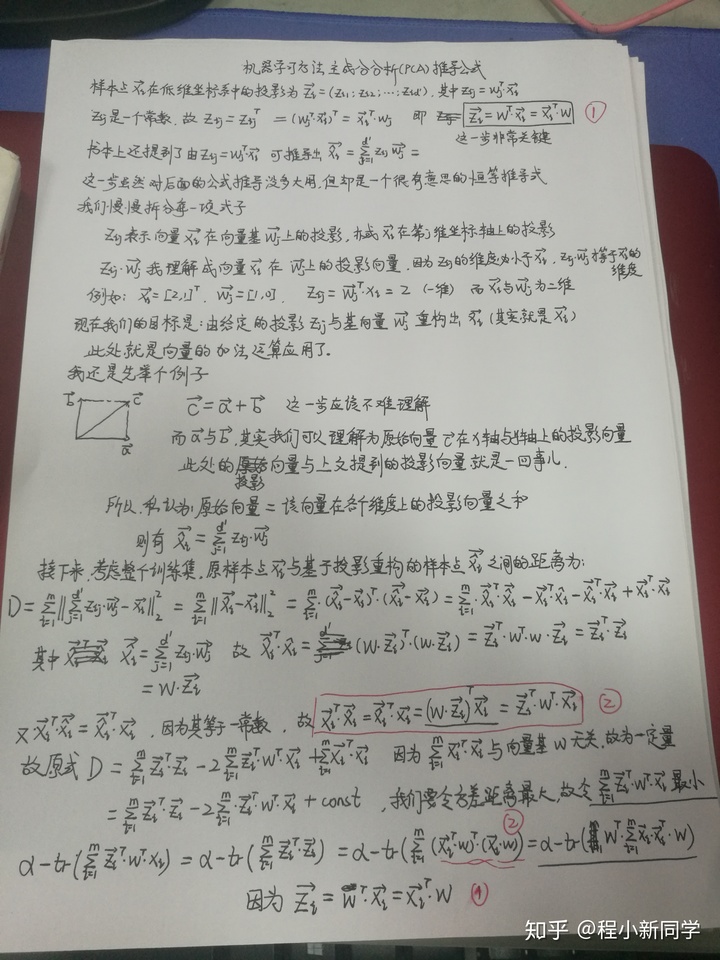 机器学习方法主成分分析(PCA)推导公式
样本点 x⃗i 在低维坐标系中的投影为 z⃗i = (zi1; zi2; …; zid'), 其中 zij = wjᵀ·x⃗i
zij 是一个常数, 故 zij = zijᵀ = (wjᵀxi)ᵀ = x⃗iᵀ·wj 即 z⃗i = Wᵀ·x⃗i = x⃗iᵀ·W ①
这一步非常关键
书本上还提到了由 zij = wjᵀ·x⃗i 可推导出 x̂⃗i = Σ(j=1→d') zij w⃗j =
这一步虽然对后面的公式推导没多大用, 但却是一个很有意思的恒等推导式
我们慢慢拆分每一项式子
zij 表示向量 x⃗i 在向量基 w⃗j 上的投影, 亦或 x⃗i 在第 j 维坐标轴上的投影
zij·w⃗j 我理解成向量 x⃗i 在 w⃗j 上的投影向量, 因为 zij 的维度为小于 x⃗i, zij·w⃗j 才等于 x⃗i 的
维度
例如: x⃗i = [2,1]ᵀ, w⃗j = [1,0], zij = w⃗jᵀ·xi = 2 (一维) 而 x⃗i 与 w⃗j 为二维
现在我们的目标是: 由给定的投影 zij 与基向量 w⃗j 重构出 x̂⃗i (其实就是 x⃗i)
此处就是向量的加法运算应用了.
我还是先举个例子
b⃗ c⃗ c⃗ = a⃗ + b⃗ 这一步应该不难理解
a⃗
而 a⃗ 与 b⃗, 其实我们可以理解为原始向量 c⃗ 在 x轴与y轴上的投影向量
此处的向量与上文提到的投影向量就是一回事儿.
投影
所以, 私认为: 原始向量 = 该向量在各个维度上的投影向量之和
则有 x̂⃗i = Σ(j=1→d') zij·w⃗j
接下来, 考虑整个训练集, 原样本点 x⃗i 与基于投影重构的样本点 x̂⃗i 之间的距离为:
D = Σ(i=1→m) ‖Σ(j=1→d') zij·w⃗j − x⃗i‖₂² = Σ(i=1→m) ‖x̂⃗i − x⃗i‖₂² = Σ(i=1→m) (x̂⃗i − x⃗i)ᵀ·(x̂⃗i − x⃗i) = Σ(i=1→m) x̂⃗iᵀ·x̂⃗i − x̂⃗iᵀ·x⃗i − x⃗iᵀ·x̂⃗i + x⃗iᵀ·x⃗i
其中 x̂⃗i = Σ(j=1→d') zij·w⃗j 故 x̂⃗iᵀ·x̂⃗i = (W·z⃗i)ᵀ·(W·z⃗i) = z⃗iᵀ·Wᵀ·W·z⃗i = z⃗iᵀ·z⃗i
= W·z⃗i
又 x⃗iᵀx̂⃗i = x̂⃗iᵀ·x⃗i, 因为其等于一常数, 故 x⃗iᵀ·x̂⃗i = x̂⃗iᵀ·x⃗i = (W·z⃗i)ᵀx⃗i = z⃗iᵀ·Wᵀ·x⃗i ②
故原式 D = Σ(i=1→m) z⃗iᵀ·z⃗i − 2Σ(i=1→m) z⃗iᵀ·Wᵀ·x⃗i + Σ(i=1→m) x⃗iᵀ·x⃗i 因为 Σ(i=1→m) x⃗iᵀ·x⃗i 与向量基 W 无关, 故为一定量
= Σ(i=1→m) z⃗iᵀ·z⃗i − 2Σ(i=1→m) z⃗iᵀ·Wᵀ·x⃗i + const, 我们要令方差距离最大, 故令 Σ(i=1→m) z⃗iᵀ·Wᵀ·x⃗i 最小
②
α−tr(Σ(i=1→m) z⃗iᵀ·Wᵀ·xi) = α−tr(Σ(i=1→m) z⃗iᵀ·z⃗i) = α−tr(Σ(i=1→m) (x⃗iᵀ·W)ᵀ·(x⃗i·W) = α−tr(Wᵀ·Σ(i=1→m) x⃗i·x⃗iᵀ·W)
因为 z⃗i = Wᵀ·x⃗i = x⃗iᵀ·W ①
知乎 @程小新同学